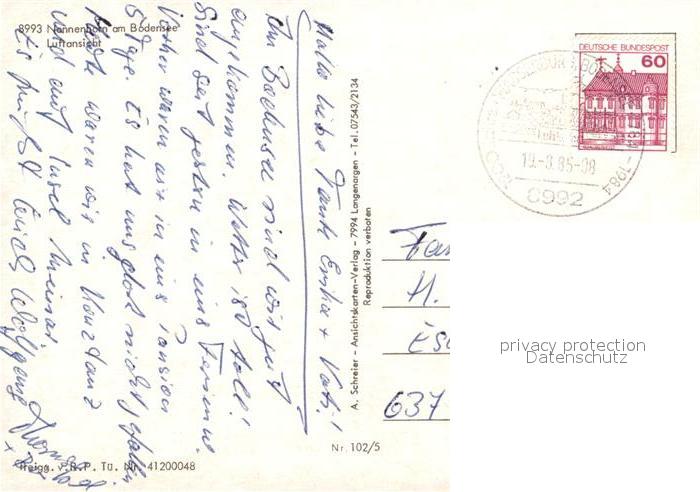 8993 Nonnenhorn am Bodensee
Luftansicht
Hallo liebe Tante Erika + Vati!
Am Bodensee sind wir gut
angekommen. Wetter ist toll!
Sind seit gestern in
Vorher waren wir in eine Pension
5 Tage. Es hat uns nicht gefallen
Heute waren wir in Konstanz
und auf Insel Meinau
Es grüßt Euch Wolfgang
A. Schreier - Ansichtskarten-Verlag - 7994 Langenargen - Tel. 07543/2134
Reproduktion verboten
Nr. 102/5
Freigg. v. R. P. Tü. Nr. 41200048
DEUTSCHE BUNDESPOST
60
19.-8.85-08
8992
-1984
Fa
H.
637
privacy protection
Datenschutz